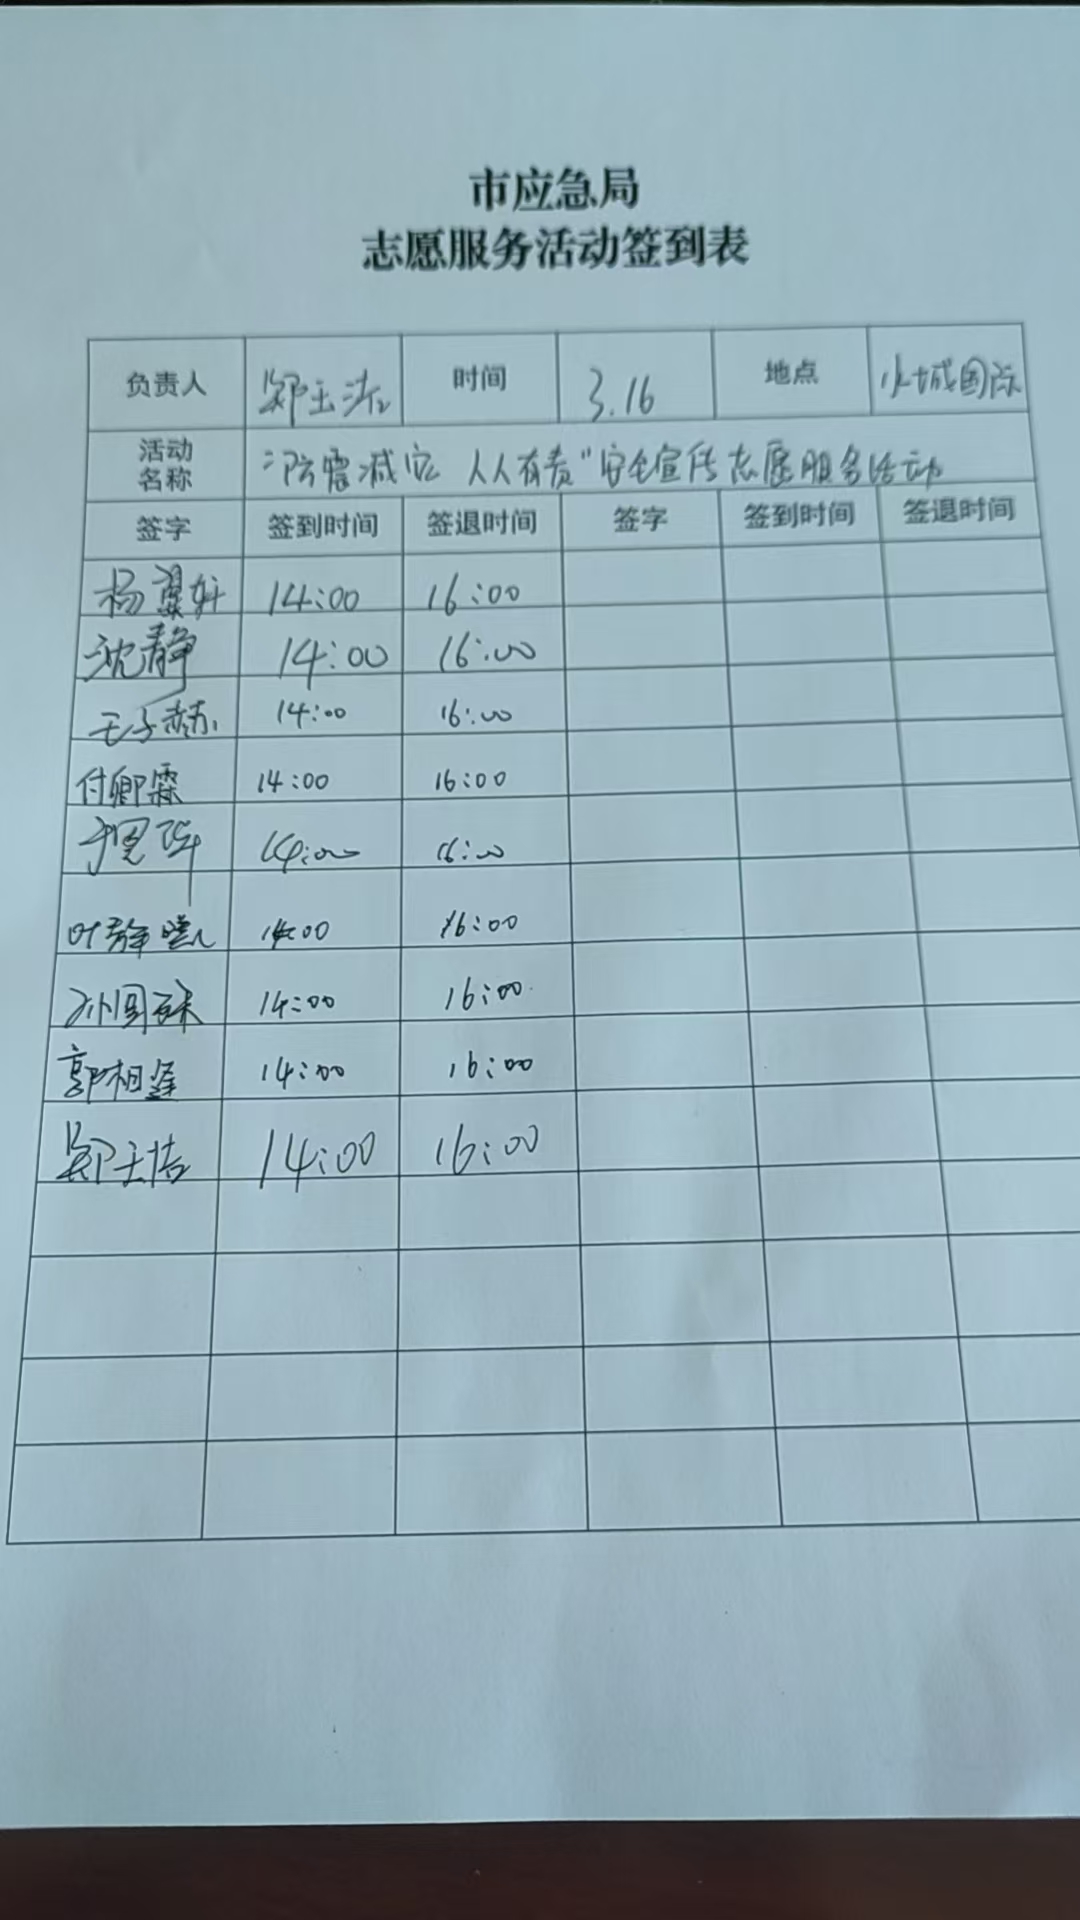 市应急局
志愿服务活动签到表
负责人 郑玉洁 时间 3.16 地点 国际
活动名称 "防震减灾 人人有责"安全宣传志愿服务活动
签字 签到时间 签退时间 签字 签到时间 签退时间
杨翼轩 14:00 16:00
沈静 14:00 16:00
王子赫 14:00 16:00
付卿霖 14:00 16:00
14:00 16:00
叶静 14:00 16:00
孙国 14:00 16:00
郭相 14:00 16:00
郑玉洁 14:00 16:00